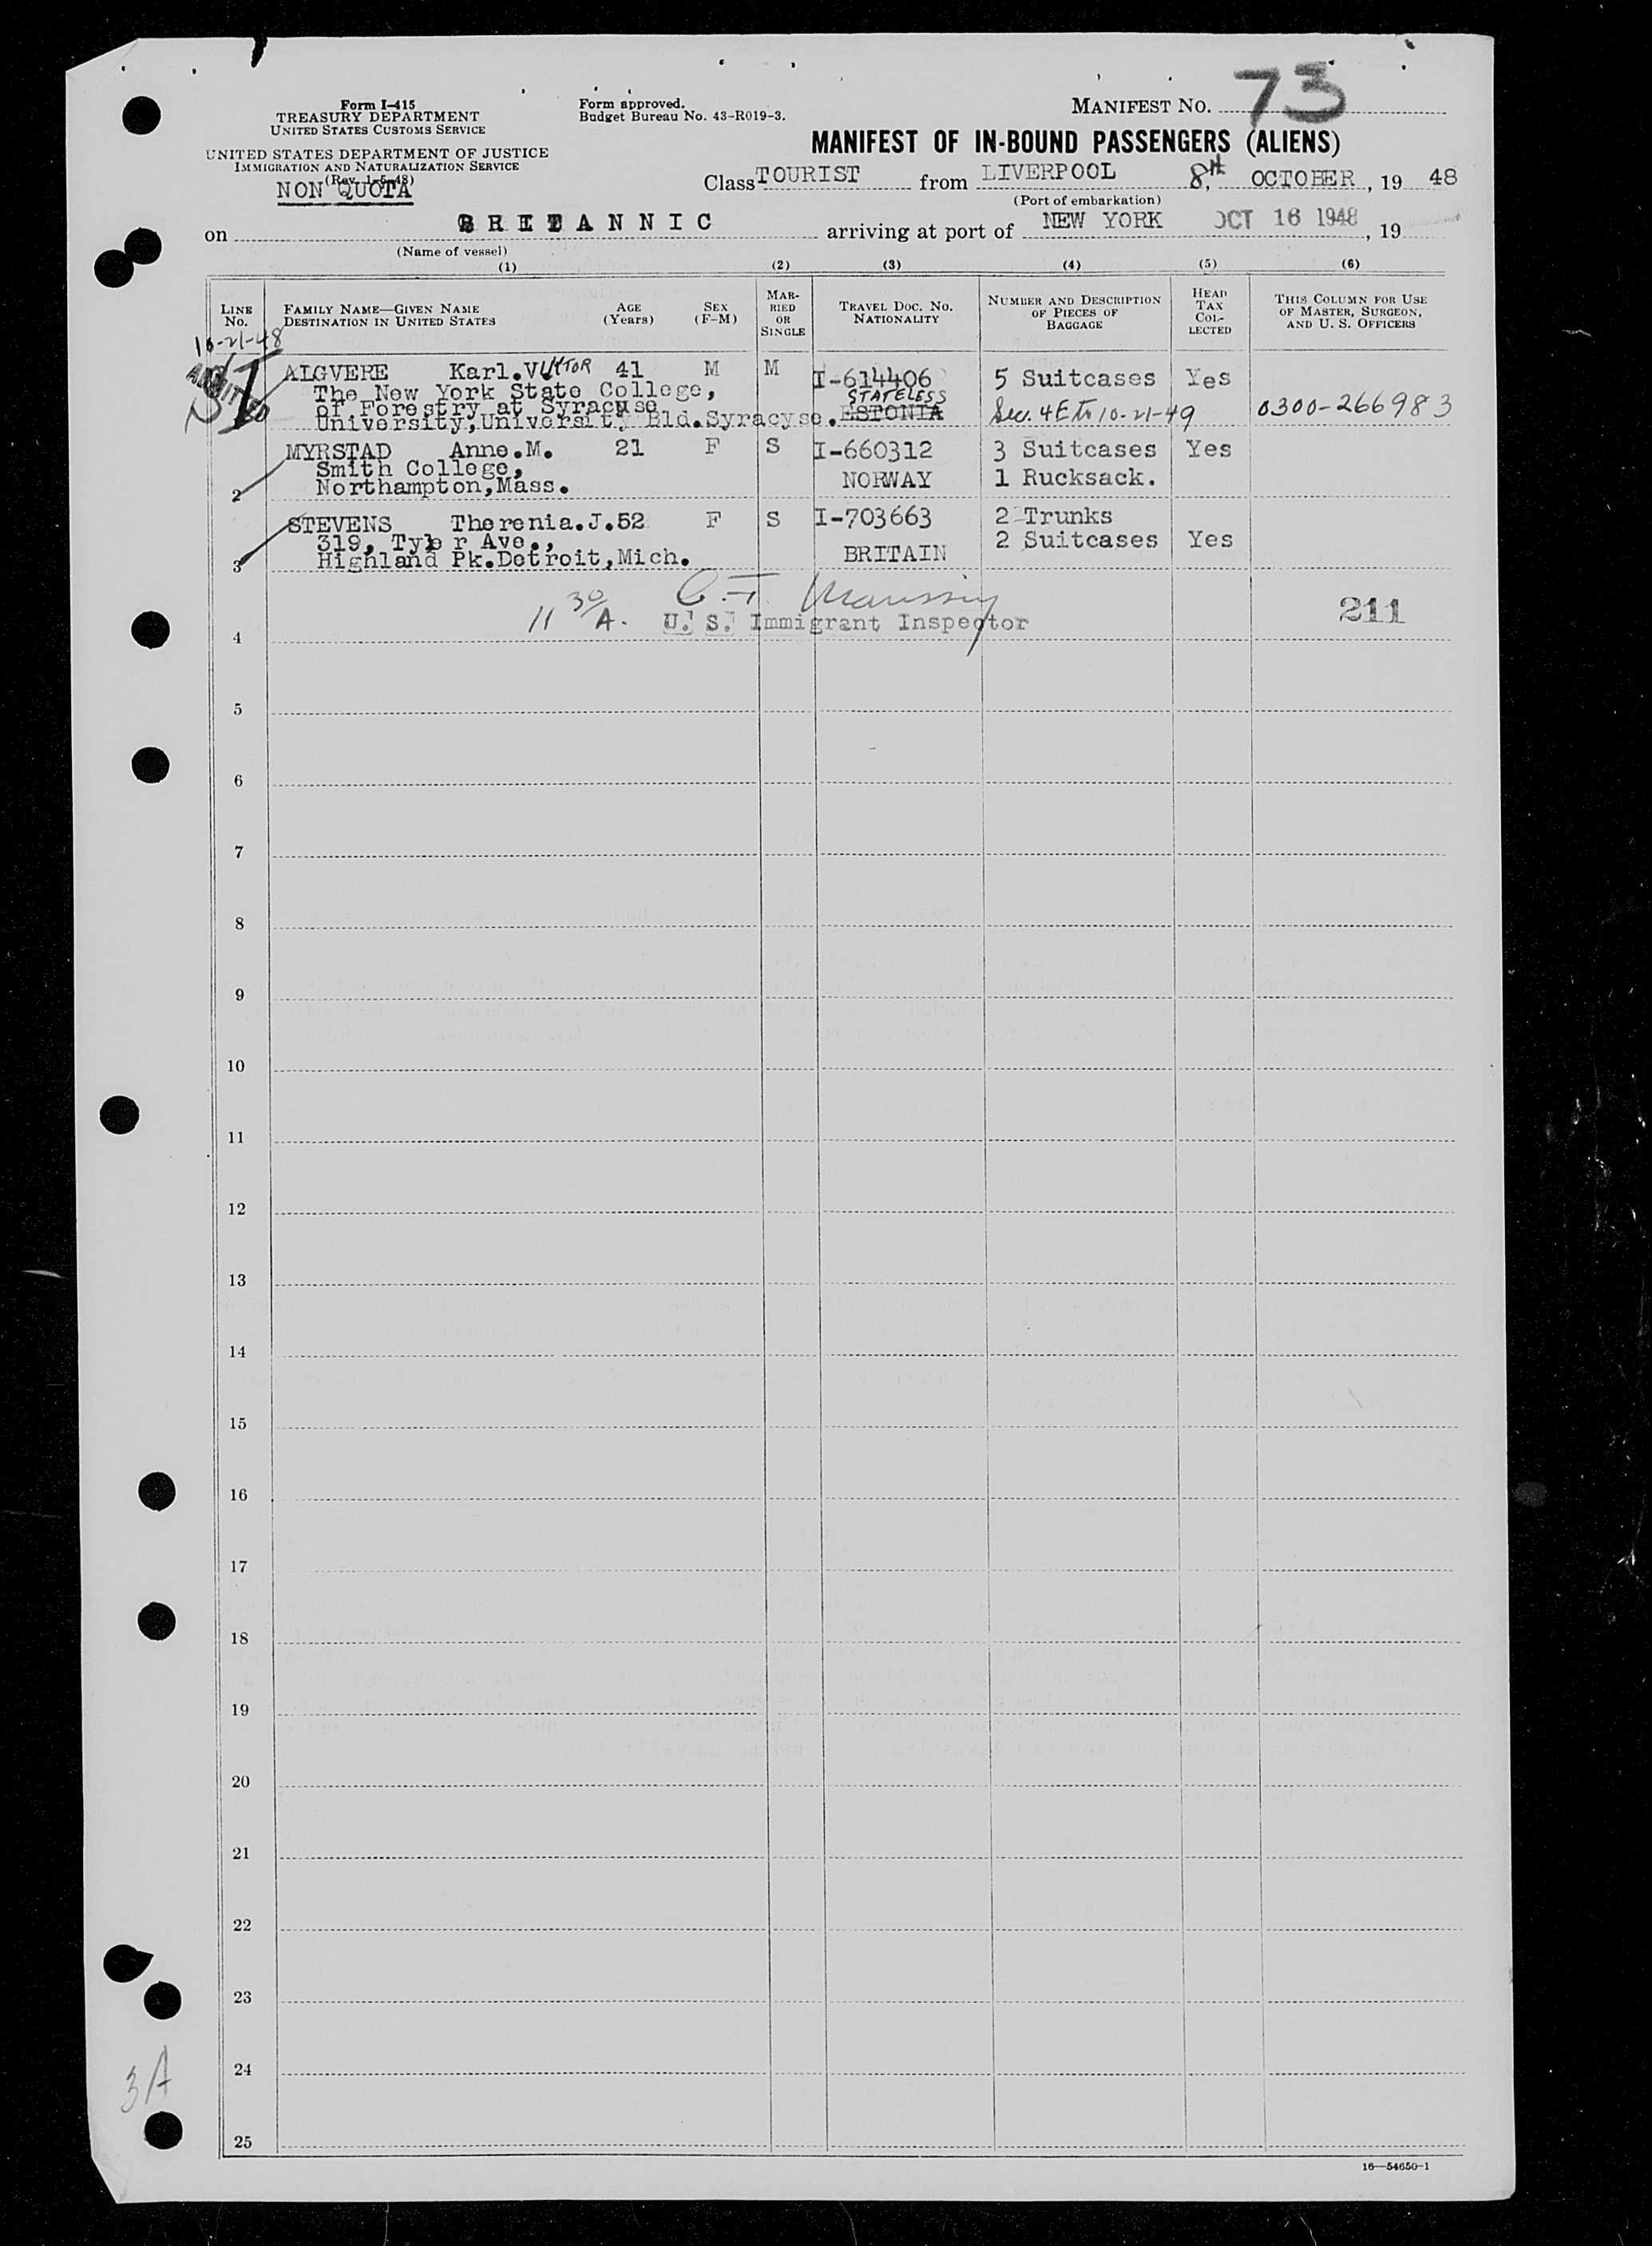 73
Form I-415
TREASURY DEPARTMENT
UNITED STATES CUSTOMS SERVICE
UNITED STATES DEPARTMENT OF JUSTICE
IMMIGRATION AND NATURALIZATION SERVICE
(Rev. 1-5-48)
NON QUOTA
Form approved.
Budget Bureau No. 43-R019-3.
MANIFEST NO.
MANIFEST OF IN-BOUND PASSENGERS (ALIENS)
Class TOURIST from LIVERPOOL 8th, OCTOBER, 19 48
(Port of embarkation)
on BRITANNIC arriving at port of NEW YORK OCT 16 1948, 19
(Name of vessel)
(1) (2) (3) (4) (5) (6)
LINE No. FAMILY NAME—GIVEN NAME DESTINATION IN UNITED STATES AGE (Years) SEX (F-M) MARRIED OR SINGLE TRAVEL DOC. No. NATIONALITY NUMBER AND DESCRIPTION OF PIECES OF BAGGAGE HEAD TAX COLLECTED THIS COLUMN FOR USE OF MASTER, SURGEON, AND U. S. OFFICERS
10-21-48
ADMITTED
1 ALGVERE Karl.VIKTOR 41 M M I-614406 5 Suitcases Yes
The New York State College, STATELESS
of Forestry at Syracuse ESTONIA Sec. 4E to 10-21-49 0300-266983
University,University Bld.Syracyse.
MYRSTAD Anne.M. 21 F S I-660312 3 Suitcases Yes
Smith College,
2 Northampton,Mass. NORWAY 1 Rucksack.
STEVENS Therenia.J.52 F S I-703663 2 Trunks
319, Tyler Ave., 2 Suitcases Yes
3 Highland Pk.Detroit,Mich. BRITAIN
11 30/A.
U. S. Immigrant Inspector
211
4
5
6
7
8
9
10
11
12
13
14
15
16
17
18
19
20
21
22
23
24
25
3A
16—54650-1